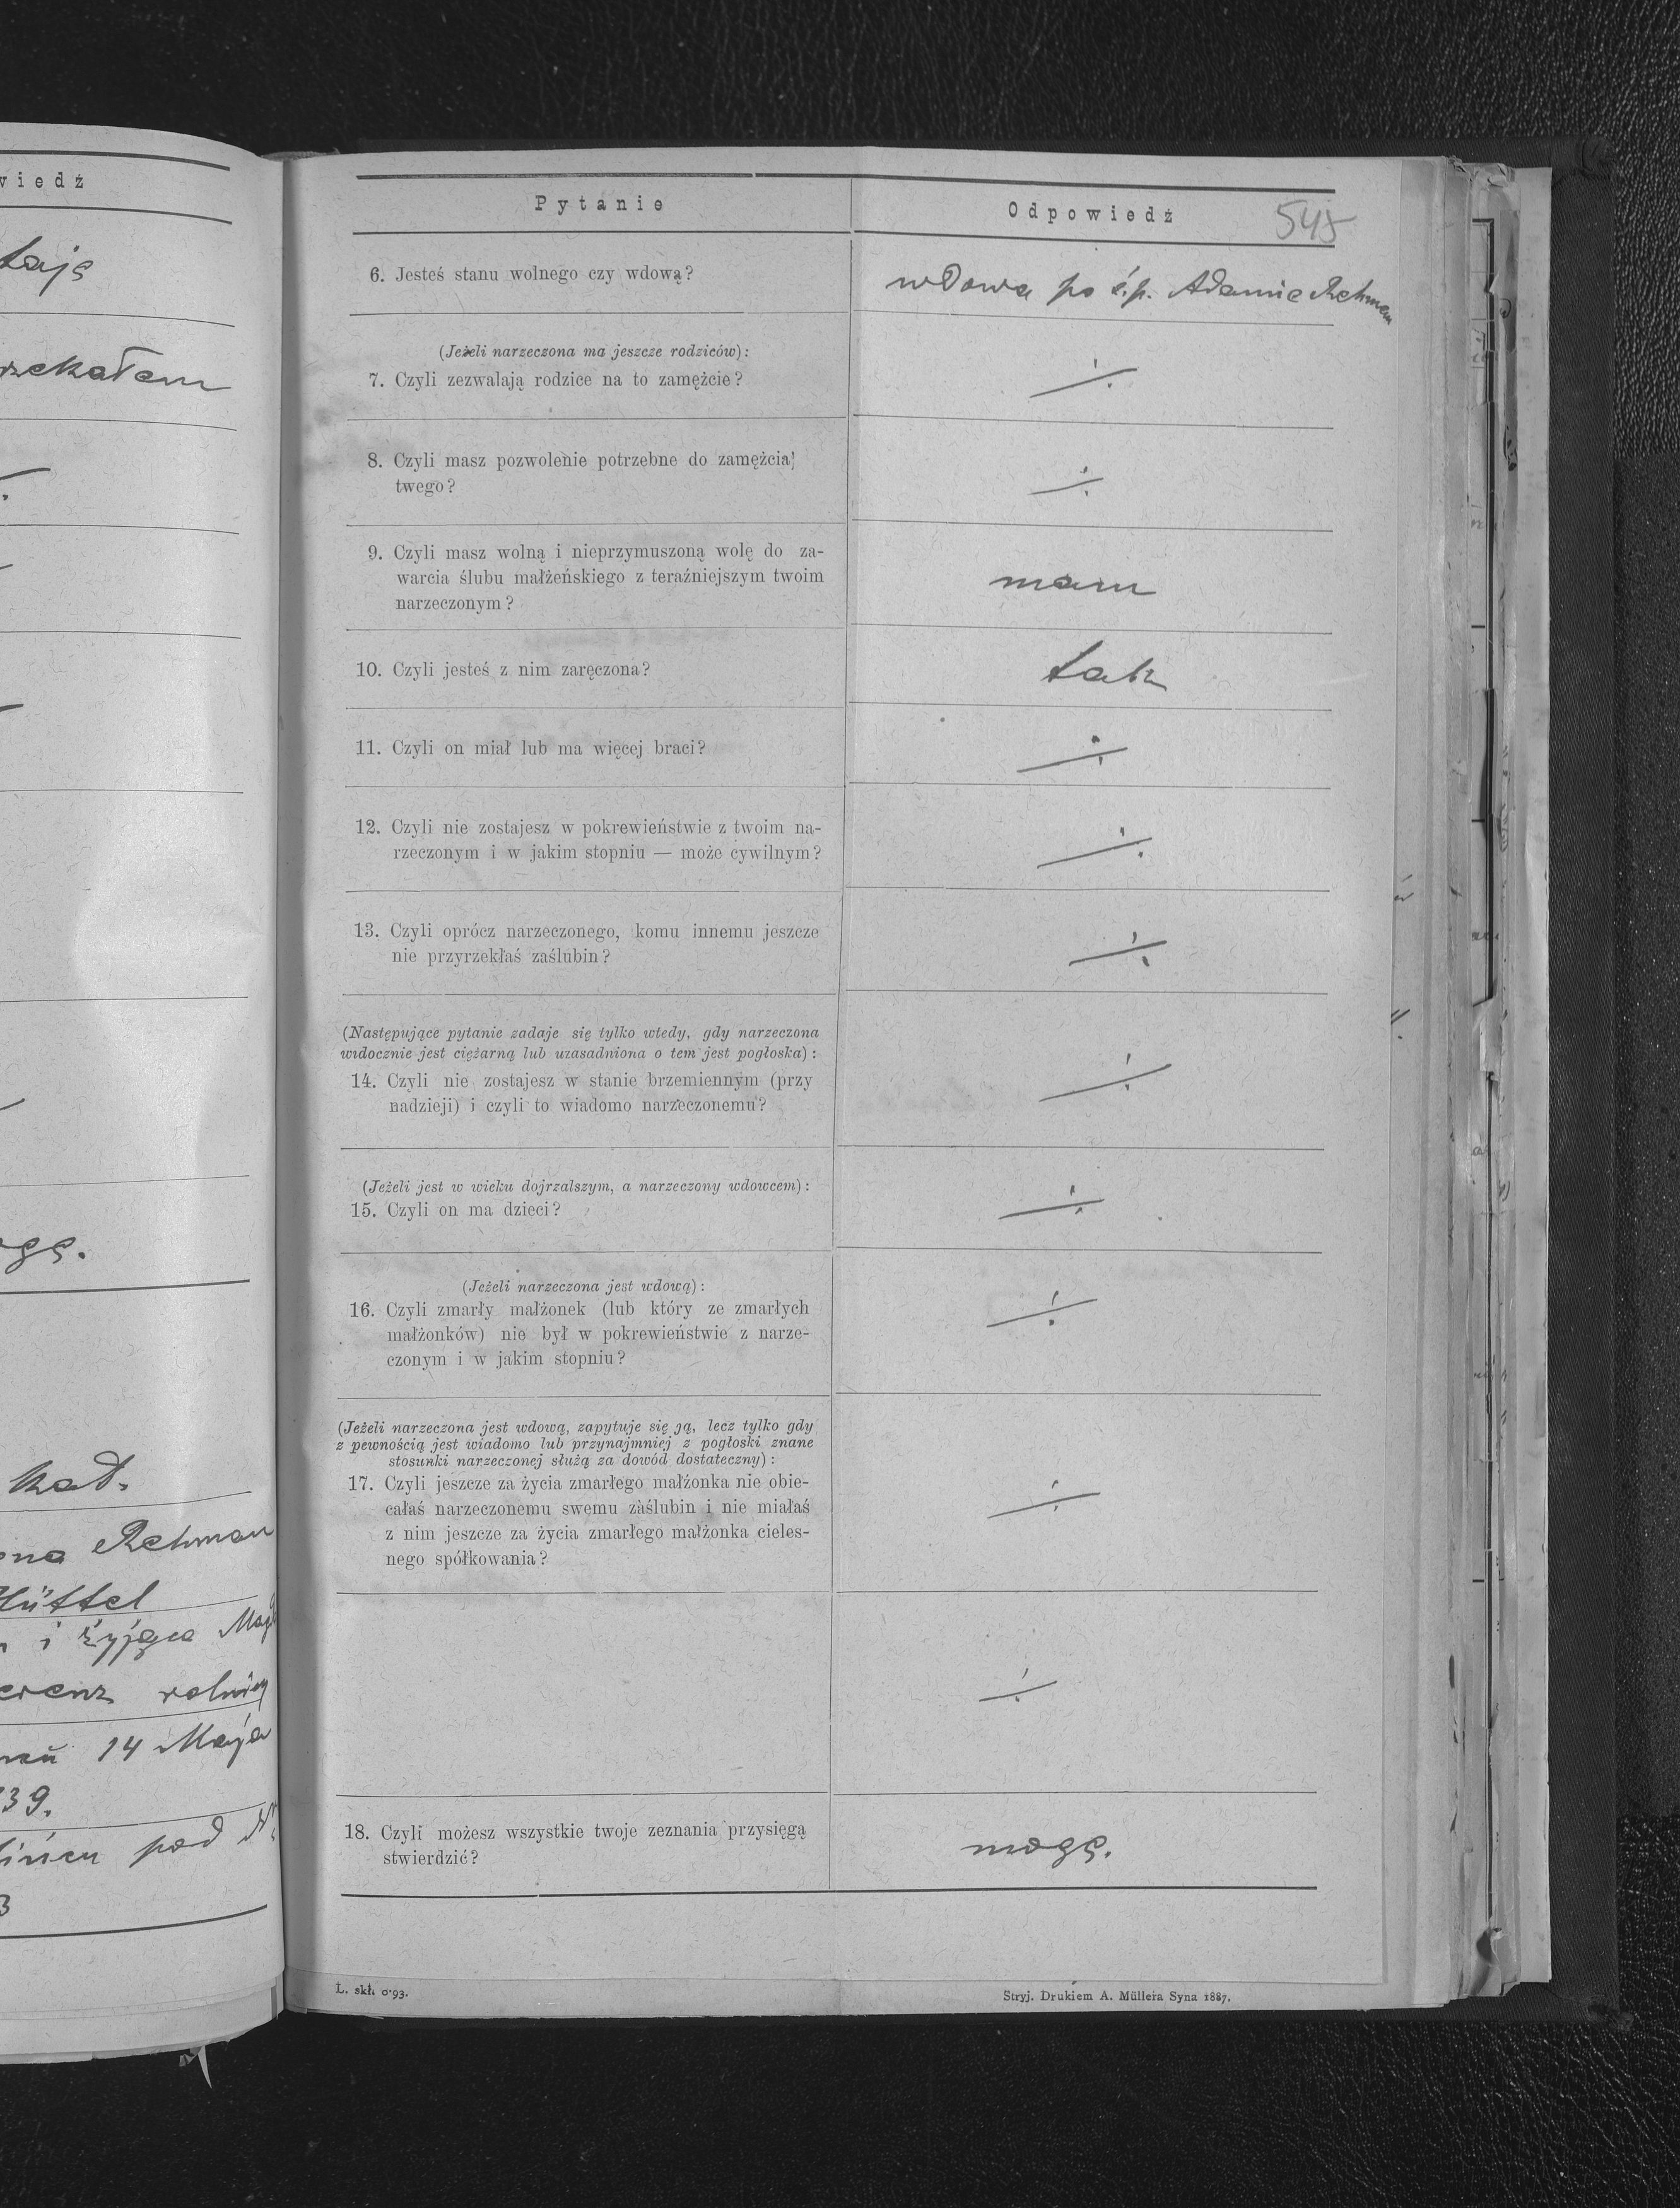 wiedź
taję
rzekałem
ogę.
kat.
Rehman
Hüttel
i żyjąca
14 Maja
39.
pod
3
Pytanie
Odpowiedź
545
6. Jesteś stanu wolnego czy wdową?
wdowa po ś.p. Adamie Rehman
(Jeżeli narzeczona ma jeszcze rodziców):
7. Czyli zezwalają rodzice na to zamężcie?
÷
8. Czyli masz pozwolenie potrzebne do zamężcia
twego?
÷
9. Czyli masz wolną i nieprzymuszoną wolę do za-
warcia ślubu małżeńskiego z teraźniejszym twoim
narzeczonym?
mam
10. Czyli jesteś z nim zaręczona?
tak
11. Czyli on miał lub ma więcej braci?
÷
12. Czyli nie zostajesz w pokrewieństwie z twoim na-
rzeczonym i w jakim stopniu — może cywilnym?
÷
13. Czyli oprócz narzeczonego, komu innemu jeszcze
nie przyrzekłaś zaślubin?
÷
(Następujące pytanie zadaje się tylko wtedy, gdy narzeczona
widocznie jest ciężarną lub uzasadniona o tem jest pogłoska):
14. Czyli nie zostajesz w stanie brzemiennym (przy
nadzieji) i czyli to wiadomo narzeczonemu?
÷
(Jeżeli jest w wieku dojrzalszym, a narzeczony wdowcem):
15. Czyli on ma dzieci?
÷
(Jeżeli narzeczona jest wdową):
16. Czyli zmarły małżonek (lub który ze zmarłych
małżonków) nie był w pokrewieństwie z narze-
czonym i w jakim stopniu?
÷
(Jeżeli narzeczona jest wdową, zapytuje się ją, lecz tylko gdy
z pewnością jest wiadomo lub przynajmniej z pogłoski znane
stosunki narzeczonej służą za dowód dostateczny):
17. Czyli jeszcze za życia zmarłego małżonka nie obie-
całaś narzeczonemu swemu zaślubin i nie miałaś
z nim jeszcze za życia zmarłego małżonka cieles-
nego spółkowania?
÷
÷
18. Czyli możesz wszystkie twoje zeznania przysięgą
stwierdzić?
mogę.
L. skł. 093.
Stryj. Drukiem A. Müllera Syna 1887.